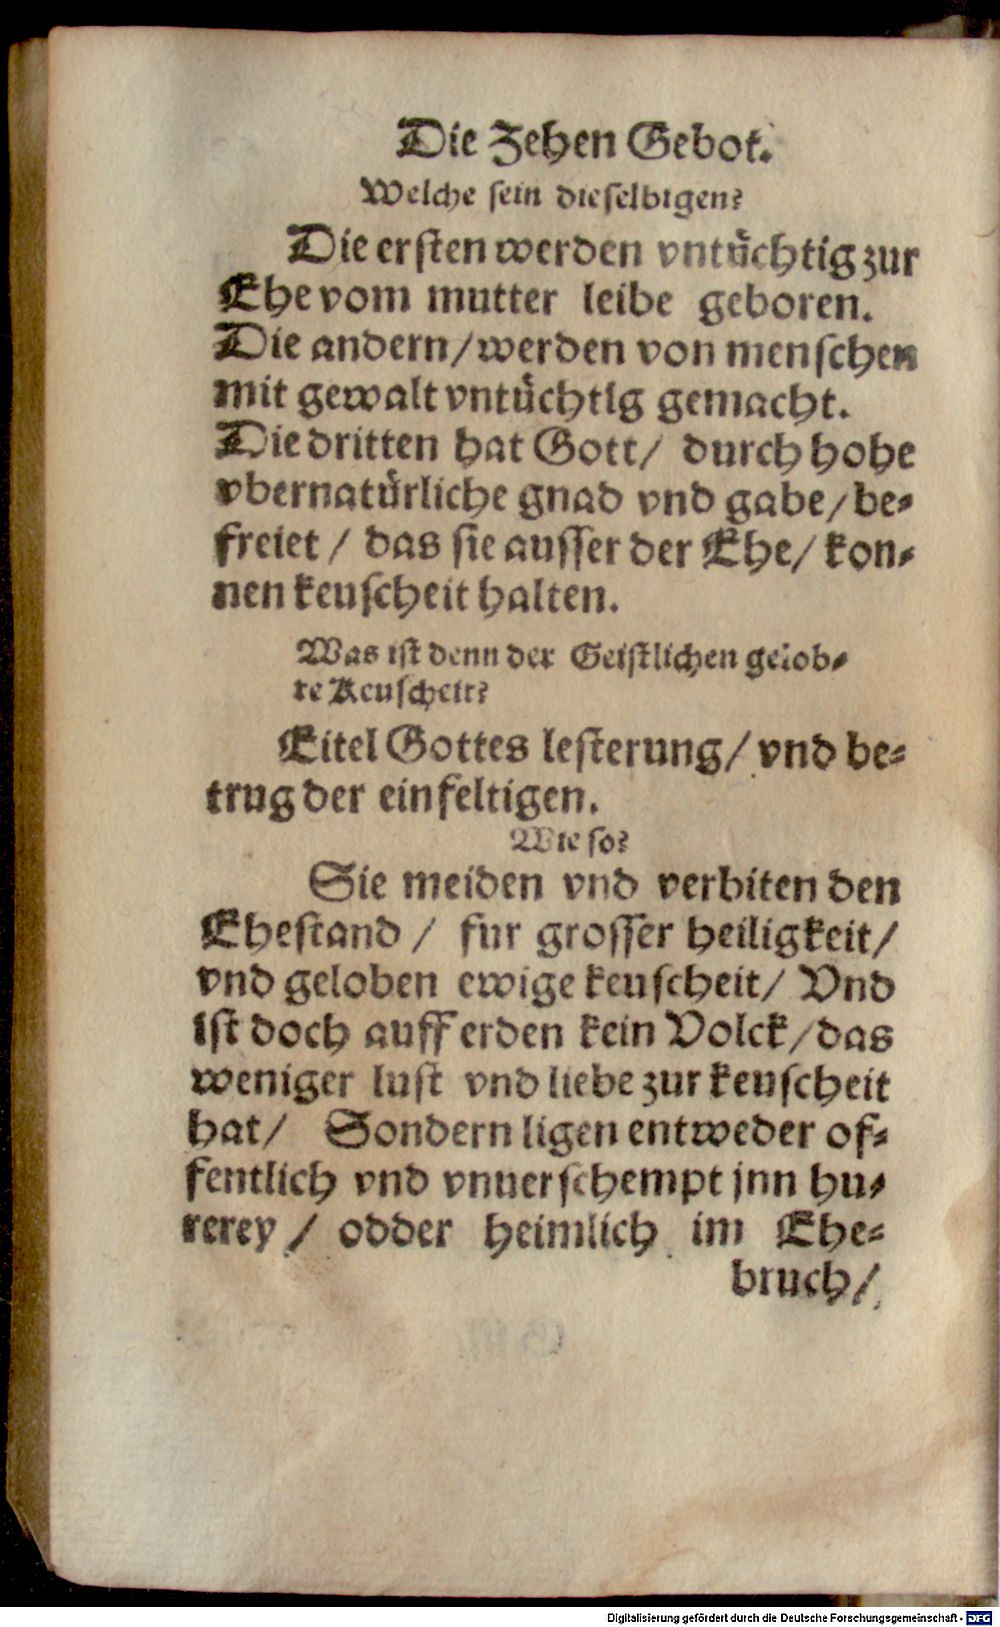 Die Zehen Gebot.
Welche sein dieselbigen?
Die ersten werden vntüchtig zur
Ehe vom mutter leibe geboren.
Die andern/werden von menschen
mit gewalt vntüchtig gemacht.
Die dritten hat Gott/ durch hohe
vbernatürliche gnad vnd gabe/be-
freiet / das sie ausser der Ehe/ kon-
nen keuscheit halten.
Was ist denn der Geistlichen gelob-
te Keuscheit?
Eitel Gottes lesterung/ vnd be-
trug der einfeltigen.
Wie so?
Sie meiden vnd verbiten den
Ehestand / fur grosser heiligkeit/
vnd geloben ewige keuscheit/ Vnd
ist doch auff erden kein Volck/das
weniger lust vnd liebe zur keuscheit
hat/ Sondern ligen entweder of-
fentlich vnd vnuerschempt jnn hu-
rerey / odder heimlich im Ehe-
bruch/
Digitalisierung gefördert durch die Deutsche Forschungsgemeinschaft - DFG